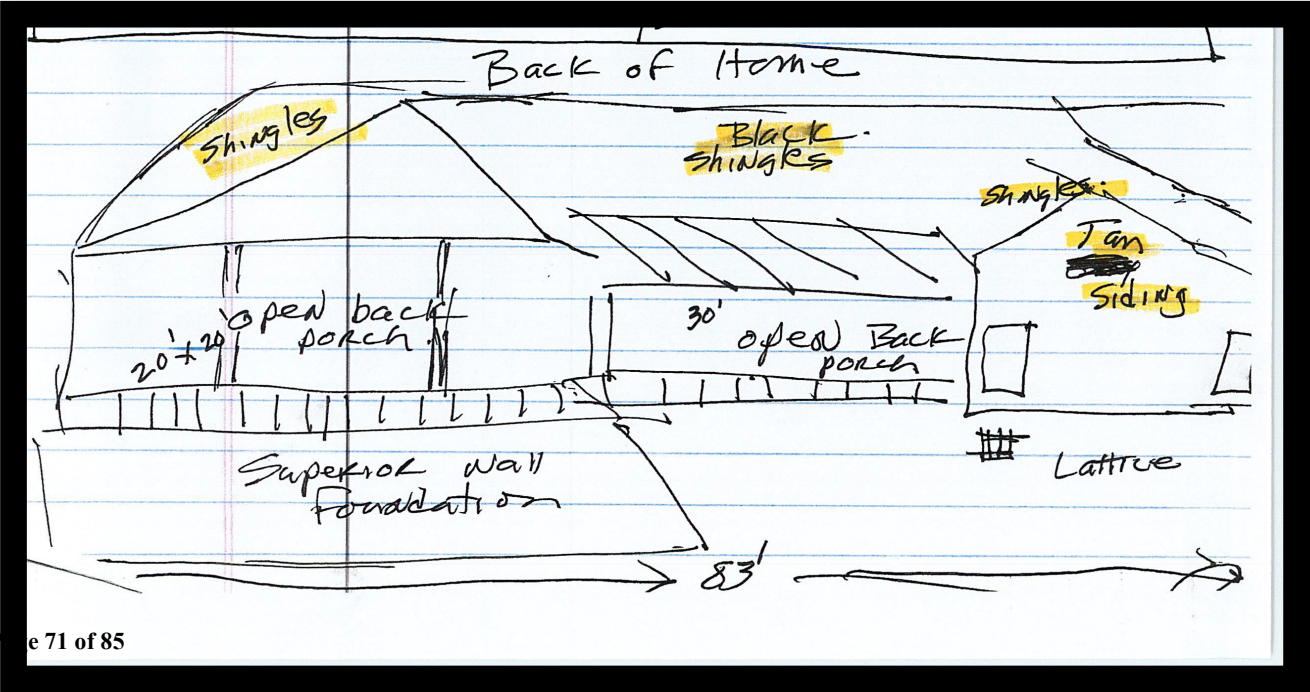 Back of Home
Shingles
Black
Shingles
Shingles.
Tan
Siding
20' x 20'
open back
porch.
30'
open Back
porch
Superior Wall
Foundation
Lattice
83'
e 71 of 85